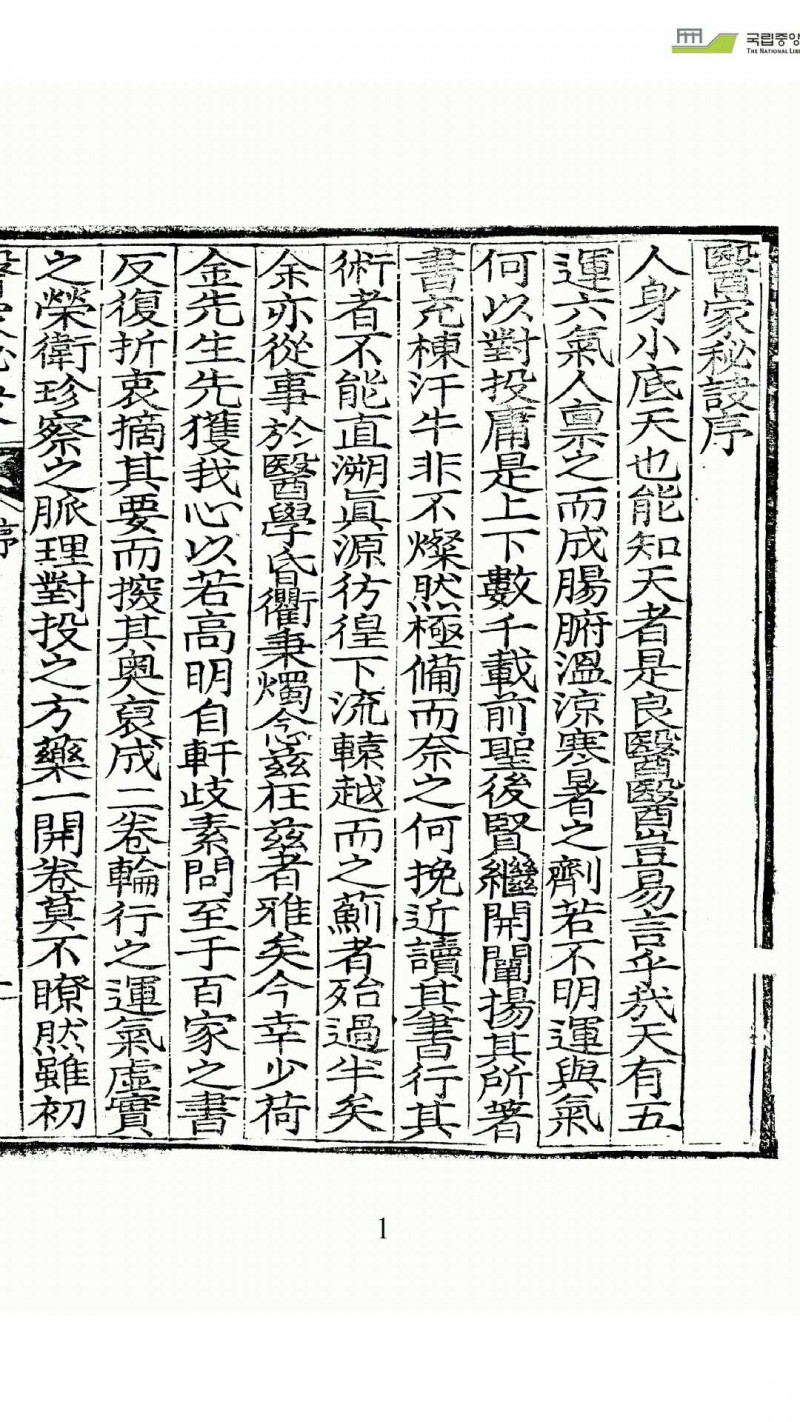 국립중앙
THE NATIONAL LIB
醫家秘訣序
人身小底天也能知天者是良醫醫豈易言乎㦲天有五
運六氣人禀之而成腸腑溫涼寒暑之劑若不明運與氣
何以對投庸是上下數千載前聖後賢繼開闡揚其所著
書充棟汗牛非不燦然極備而奈之何挽近讀其書行其
術者不能直溯眞源彷徨下流轅越而之薊者殆過半矣
余亦從事於醫學昏衢秉燭念玆在玆者雅矣今幸少荷
金先生先獲我心以若高明自軒歧素問至于百家之書
反復折衷摘其要而撥其奧裒成二卷輪行之運氣虛實
之榮衛珍察之脈理對投之方藥一開卷莫不瞭然雖初
序
1